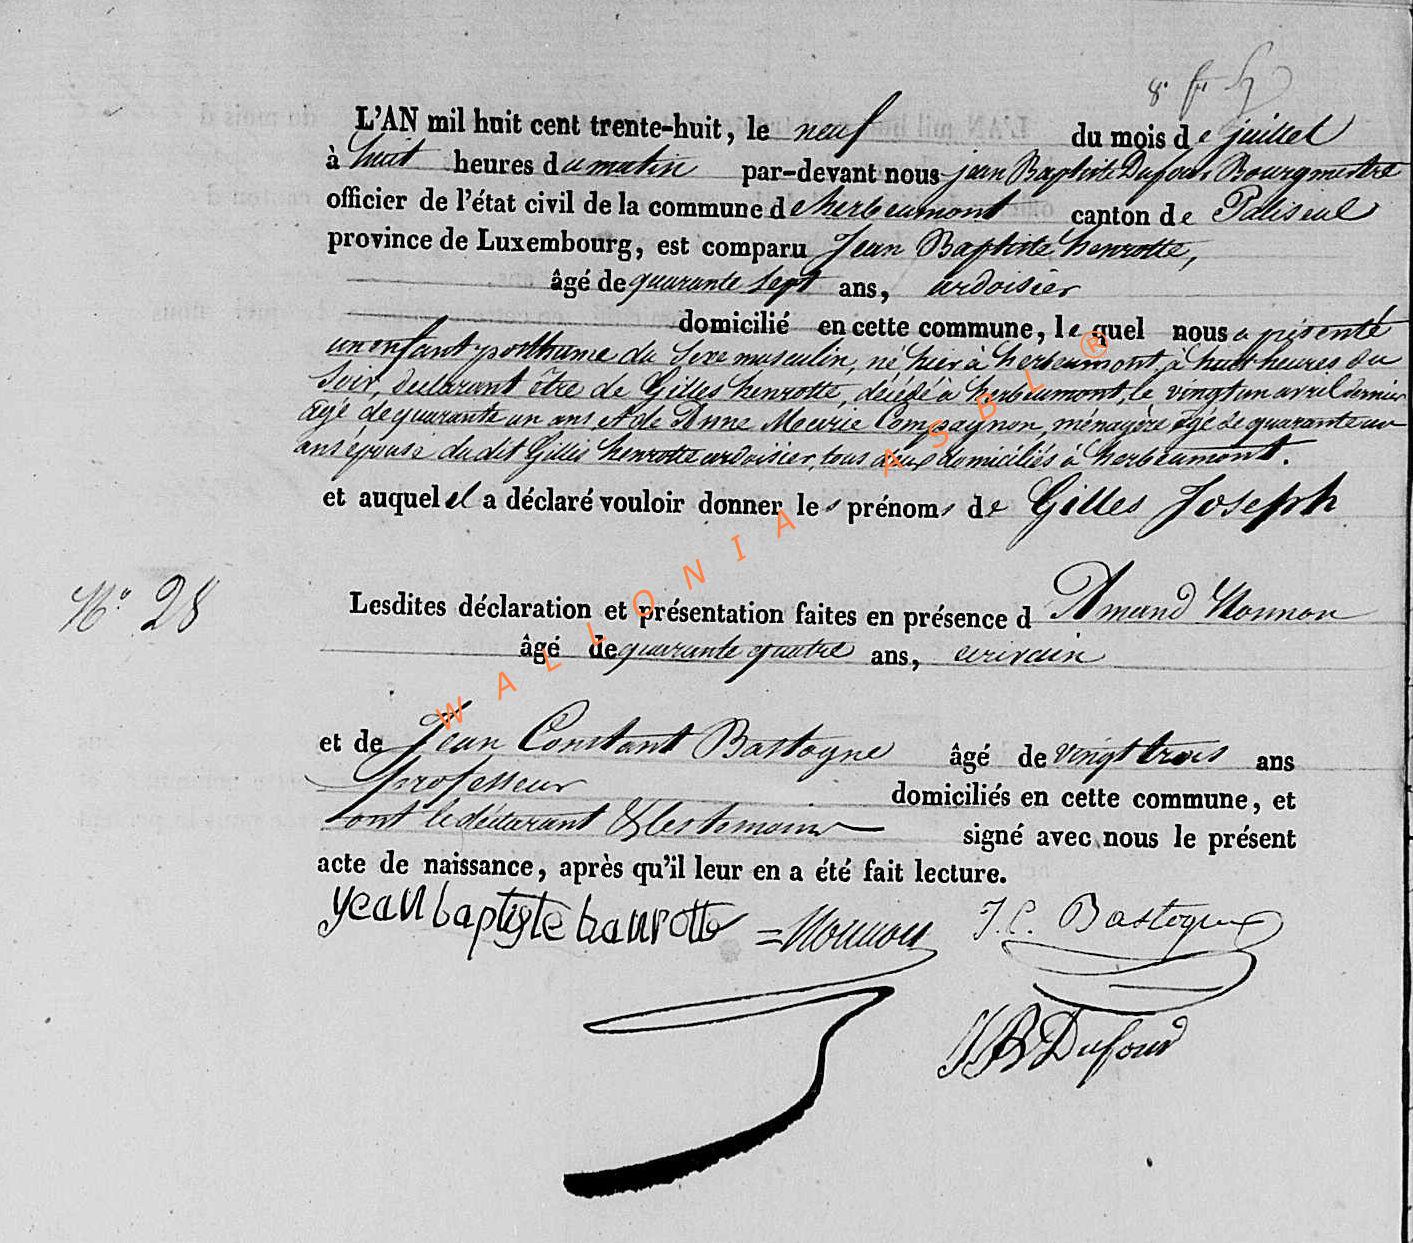 8
L'AN mil huit cent trente-huit, le neuf du mois de juillet
à huit heures du matin par-devant nous jean Baptiste Dufour Bourgmestre
officier de l'état civil de la commune de herbeumont canton de Paliseul
province de Luxembourg, est comparu Jean Baptiste henrotte,
âgé de quarante sept ans, ardoisier
domicilié en cette commune, lequel nous a présenté
un enfant posthume du sexe masculin, né hier à herbeumont, à huit heures du
soir, déclarant être de Gilles henrotte, décédé à herbeumont, le vingt un avril dernier
âgé de quarante un ans et de Anne Marie Compagnon, ménagère âgé de quarante un
ans épouse du dit Gilles henrotte ardoisier, tous deux domiciliés à herbeumont.
et auquel il a déclaré vouloir donner les prénoms de Gilles Joseph
N° 28
Lesdites déclaration et présentation faites en présence d Amand Nonnon
âgé de quarante quatre ans, écrivain
et de Jean Constant Bastogne âgé de vingt trois ans
professeur domiciliés en cette commune, et
ont le déclarant & les témoins signé avec nous le présent
acte de naissance, après qu'il leur en a été fait lecture.
jean baptiste hanrotte = Nonnon J. C. Bastogne
JB Dufour
WALLONIA ASBL ®